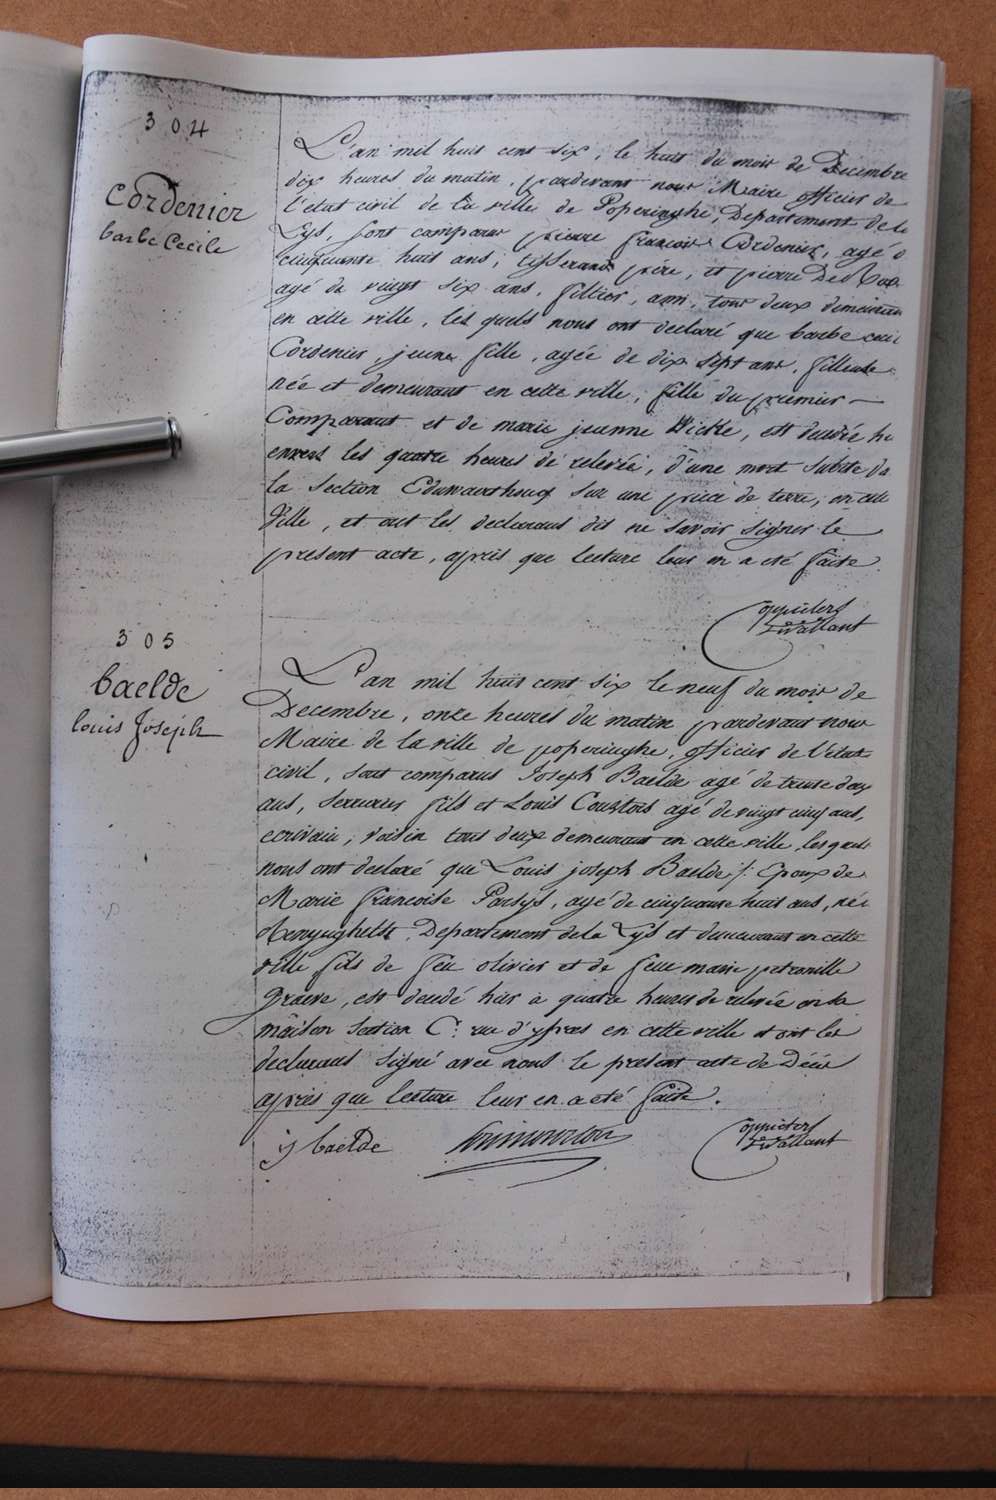 304
Cordenier
barbe Cecile
L'an mil huit cent six, le huit du mois de Decembre
dix heures du matin, pardevant nous Maire officier de
l'etat civil de la ville de Poperinghe, Departement de la
Lys, sont comparus pierre francois Cordenier, agé
cinquante huit ans, tisserand père, et pierre
agé de vingt six ans, fillier, ami, tous deux demeurans
en cette ville, les quels nous ont declaré que barbe
Cordenier, jeune fille, agée de dix sept ans, fileuse
née et demeurant en cette ville, fille du premier
Comparant et de marie jeanne, est decedée
envers les quatre heures de relevée, d'une mort subite
la section sur une pièce de terre, en cette
Ville, et ont les declarans dit ne savoir signer le
present acte, après que lecture leur en a été faite.
305
baelde
louis Joseph
L'an mil huit cent six le neuf du mois de
Decembre, onze heures du matin pardevant nous
Maire de la ville de poperinghe, officier de l'etat
civil, sont comparus Joseph Baelde agé de trente deux
ans, serrurier fils et Louis agé de vingt cinq ans,
ecrivain, voisin tous deux demeurant en cette ville, les quels
nous ont declaré que Louis joseph Baelde /: Epoux de
Marie francoise, agé de cinquante huit ans, né
Departement de la Lys et demeurant en cette
ville fils de feu olivier et de feue marie petronille
graeve, est decedé hier à quatre heures de relevée en sa
maison section C: rue d'ypres en cette ville et ont les
declarans signé avec nous le present acte de Décès
après que lecture leur en a été faite.
ij baelde